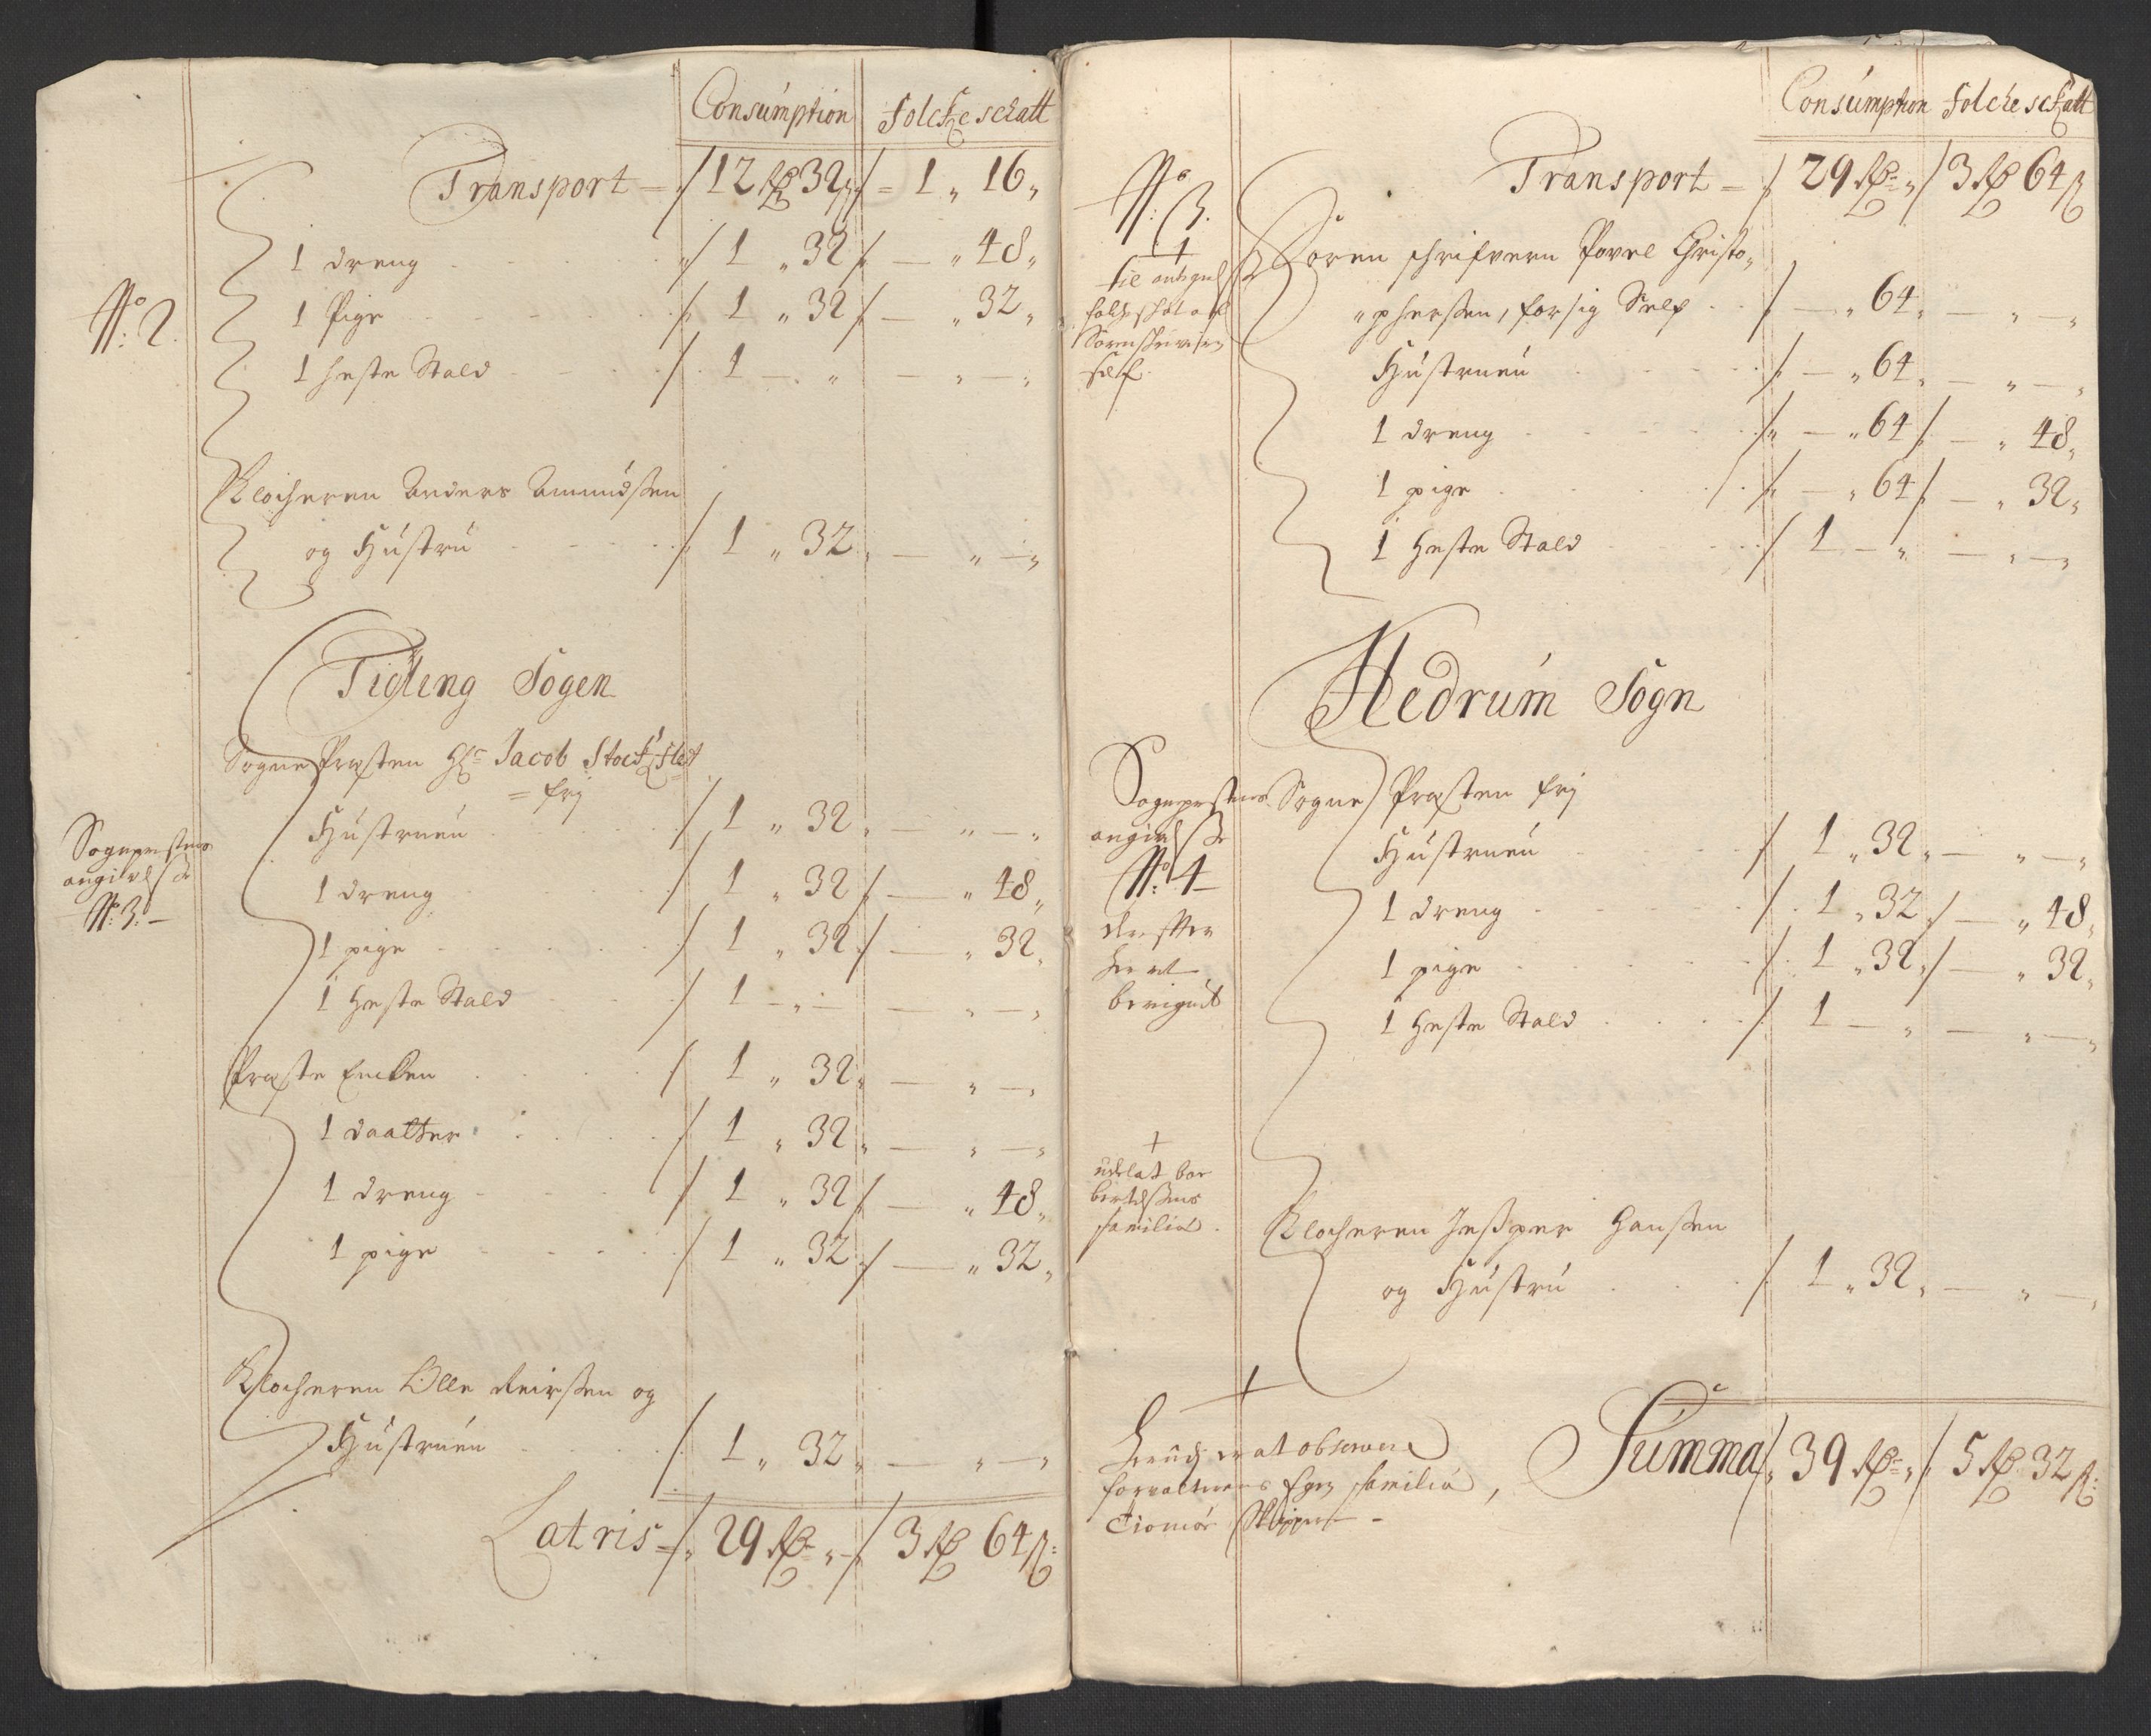 Consumption Folcke schatt
Transport = 12 Rd 32 ß = 1 „ 16 „
1 dreng 1 „ 32 — „ 48 „
No 2.
1 Pige 1 „ 32 — „ 32 „
1 heste Stald 1 — „ — „ — „
Klocheren Anders Amundßen
og Hustru 1 „ 32 „ — „ — „
Tiöling Sogen
Sogne Præsten Hr Jacob Stockfled
= frj
Hustruen 1 „ 32 „ — „ — „
Sogneprestens
angivelse
No 3. —
1 dreng 1 „ 32 — „ 48 „
1 pige 1 „ 32 — „ 32 „
1 heste Stald 1 — „ — — „ — „
Præste Encken 1 „ 32 „ — „ — „
1 daatter 1 „ 32 „ — „ — „
1 dreng 1 „ 32 — „ 48 „
1 pige 1 „ 32 — „ 32 „
Klocheren Olle Reirßen og
Hustruen 1 „ 32 „ — „ — „
Latris = 29 Rd „ 3 Rd 64 ß
Consumption Folcke schatt
Transport = 29 Rd „ 3 Rd 64 ß
No 3.
+
Soren schrifvern Povel Christo„
„pherßen, for sig Self — „ 64 „ — „ — „
Sorenskriveren
self.
Hustruen — „ 64 „ — „ — „
1 dreng — „ 64 — „ 48 „
1 pige — „ 64 — „ 32 „
1 heste Stald 1 — „ — „ — „
Hedrum Sogn
Sogneprestens
angivelse
No 4 —
Sogne Præsten frj
Hustruen 1 „ 32 „ — „ — „
1 dreng 1 „ 32 — „ 48 „
1 pige 1 „ 32 — „ 32 „
1 heste Stald 1 — „ — „ — „
+
udelat
familie.
Klocheren Jeßper Hanßen
og Hustru 1 „ 32 „ — „ — „
+
at observere
forvalterens Egen familie,
Summa 39 Rd „ 5 Rd 32 ß